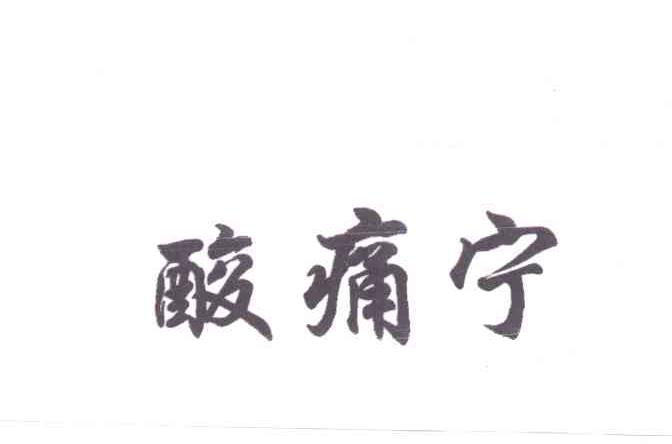 酸痛宁